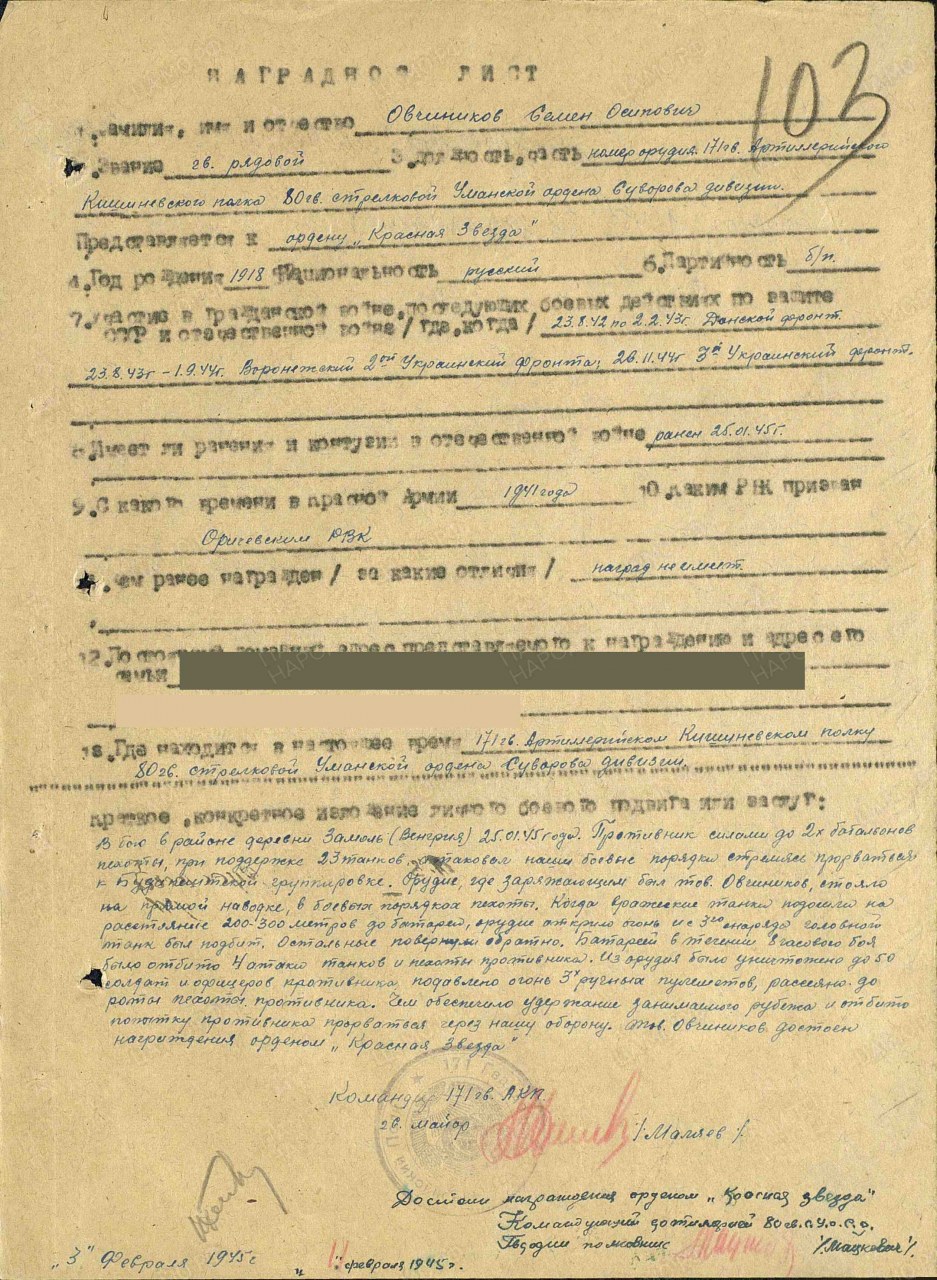 103
НАГРАДНОЙ ЛИСТ
1. Фамилия, имя и отчество Овчиников Семен Осипович
2. Звание гв. рядовой 3. Должность, часть номер орудия 171 гв. Артиллерийского
Кишиневского полка 80 гв. стрелковой Уманской ордена Суворова дивизии.
Представляется к ордену „Красная Звезда"
4. Год рождения 1918 5. Национальность русский 6. Партийность б/п.
7. Участие в гражданской войне, последующих боевых действиях по защите
СССР и отечественной войне / где, когда / 23.8.42 по 2.2.43г Донской фронт
23.8.43г – 1.9.44г. Воронежский 2ой Украинский фронта; 26.11.44г 3й Украинский фронт.
8. Имеет ли ранения и контузии в отечественной войне ранен 25.01.45г.
9. С какого времени в Красной Армии 1941 года 10. Каким РВК призван
Оричевским РВК
11. Чем ранее награжден / за какие отличия / наград не имеет.
12. Постоянный домашний адрес представляемого к награждению и адрес его
семьи
13. Где находится в настоящее время 171 гв. Артиллерийском Кишиневском полку
80 гв. стрелковой Уманской ордена Суворова дивизии.
Краткое, конкретное изложение личного боевого подвига или заслуг:
В бою в районе деревни Замель (Венгрия) 25.01.45 года. Противник силами до 2х батальонов
пехоты, при поддержке 23 танков, атаковал наши боевые порядки стремясь прорваться
к Будапештской группировке. Орудие, где заряжающим был тов. Овчиников, стояло
на прямой наводке, в боевых порядках пехоты. Когда вражеские танки подошли на
расстояние 200-300 метров до батареи, орудие открыло огонь и с 3го снаряда головной
танк был подбит. Остальные повернули обратно. Батареей в течении 8 часового боя
было отбито 4 атаки танков и пехоты противника. Из орудия было уничтожено до 50
солдат и офицеров противника, подавлено огонь 3х ручных пулеметов, рассеяно до
роты пехоты противника. Чем обеспечило удержание занимаемого рубежа и отбито
попытку противника прорваться через нашу оборону. Тов. Овчиников достоен
награждения орденом „Красная Звезда"
Командир 171 гв. АКП
гв. майор /Маляев/.
Достоин награждения орденом „Красная звезда"
Командующий артиллерией 80 гв. с.У.о.С.д.
Гвардии полковник /Мацкевич/.
„3" Февраля 1945г
„ " февраля 1945г.